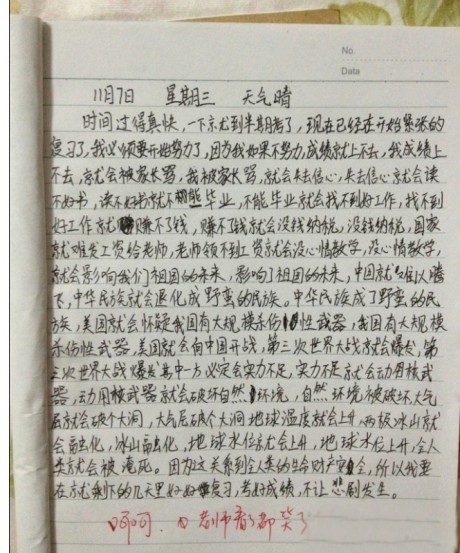 No.
Date
11月7日 星期三 天气晴
时间过得真快,一下就到半期考了,现在已经在开始紧张的
复习了,我必须要开始努力了,因为我如果不努力,成绩就上不去,我成绩上
不去,就会被家长骂,我被家长骂,就会失去信心,失去信心就会读
不好书,读不好书就不能毕业,不能毕业就会找不到好工作,找不到
好工作就赚不了钱,赚不了钱就会没钱纳税,没钱纳税,国家
就难发工资给老师,老师领不到工资就会没心情教学,没心情教学,
就会影响我们祖国的未来,影响了祖国的未来,中国就难以腾
飞,中华民族就会退化成野蛮的民族。中华民族成了野蛮的民
族,美国就会怀疑我国有大规模杀伤性武器,我国有大规模
杀伤性武器,美国就会向中国开战,第三次世界大战就会爆发,第
三次世界大战爆发其中一方必定会实力不足,实力不足就会动用核武
器,动用核武器就会破坏自然环境,自然环境被破坏,大气
层就会破个大洞,大气层破个大洞地球温度就会上升,两极冰山就
会融化,冰山融化,地球水位就会上升,地球水位上升,全人
类就会被淹死。因为这关系到全人类的生命财产安全,所以我要
在就剩下的几天里好好复习,考好成绩,不让悲剧发生。
呵呵. 老师看了都笑了